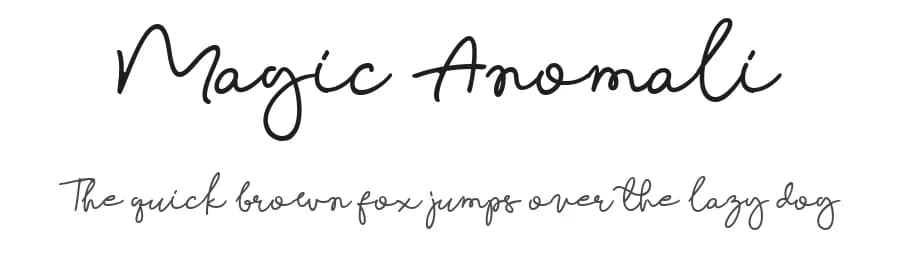 Magic Anomali
The quick brown fox jumps over the lazy dog